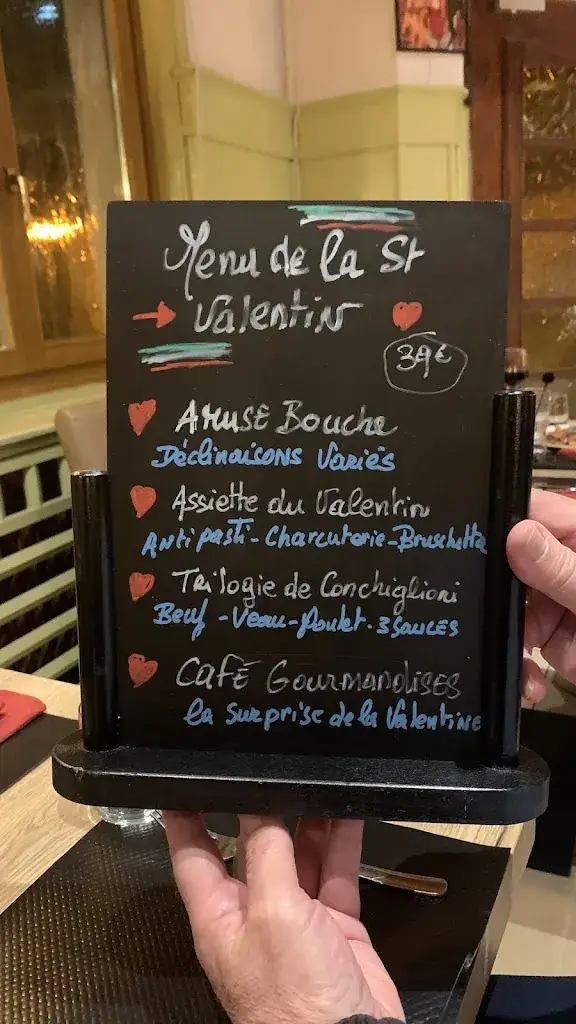 Menu de la St
Valentin
39€
Amuse Bouche
Déclinaisons Variés
Assiette du Valentin
Antipasti - Charcuterie - Bruschetta
Trilogie de Conchiglioni
Beuf - Veau - Poulet . 3 sauces
Café Gourmandises
la surprise de la Valentine